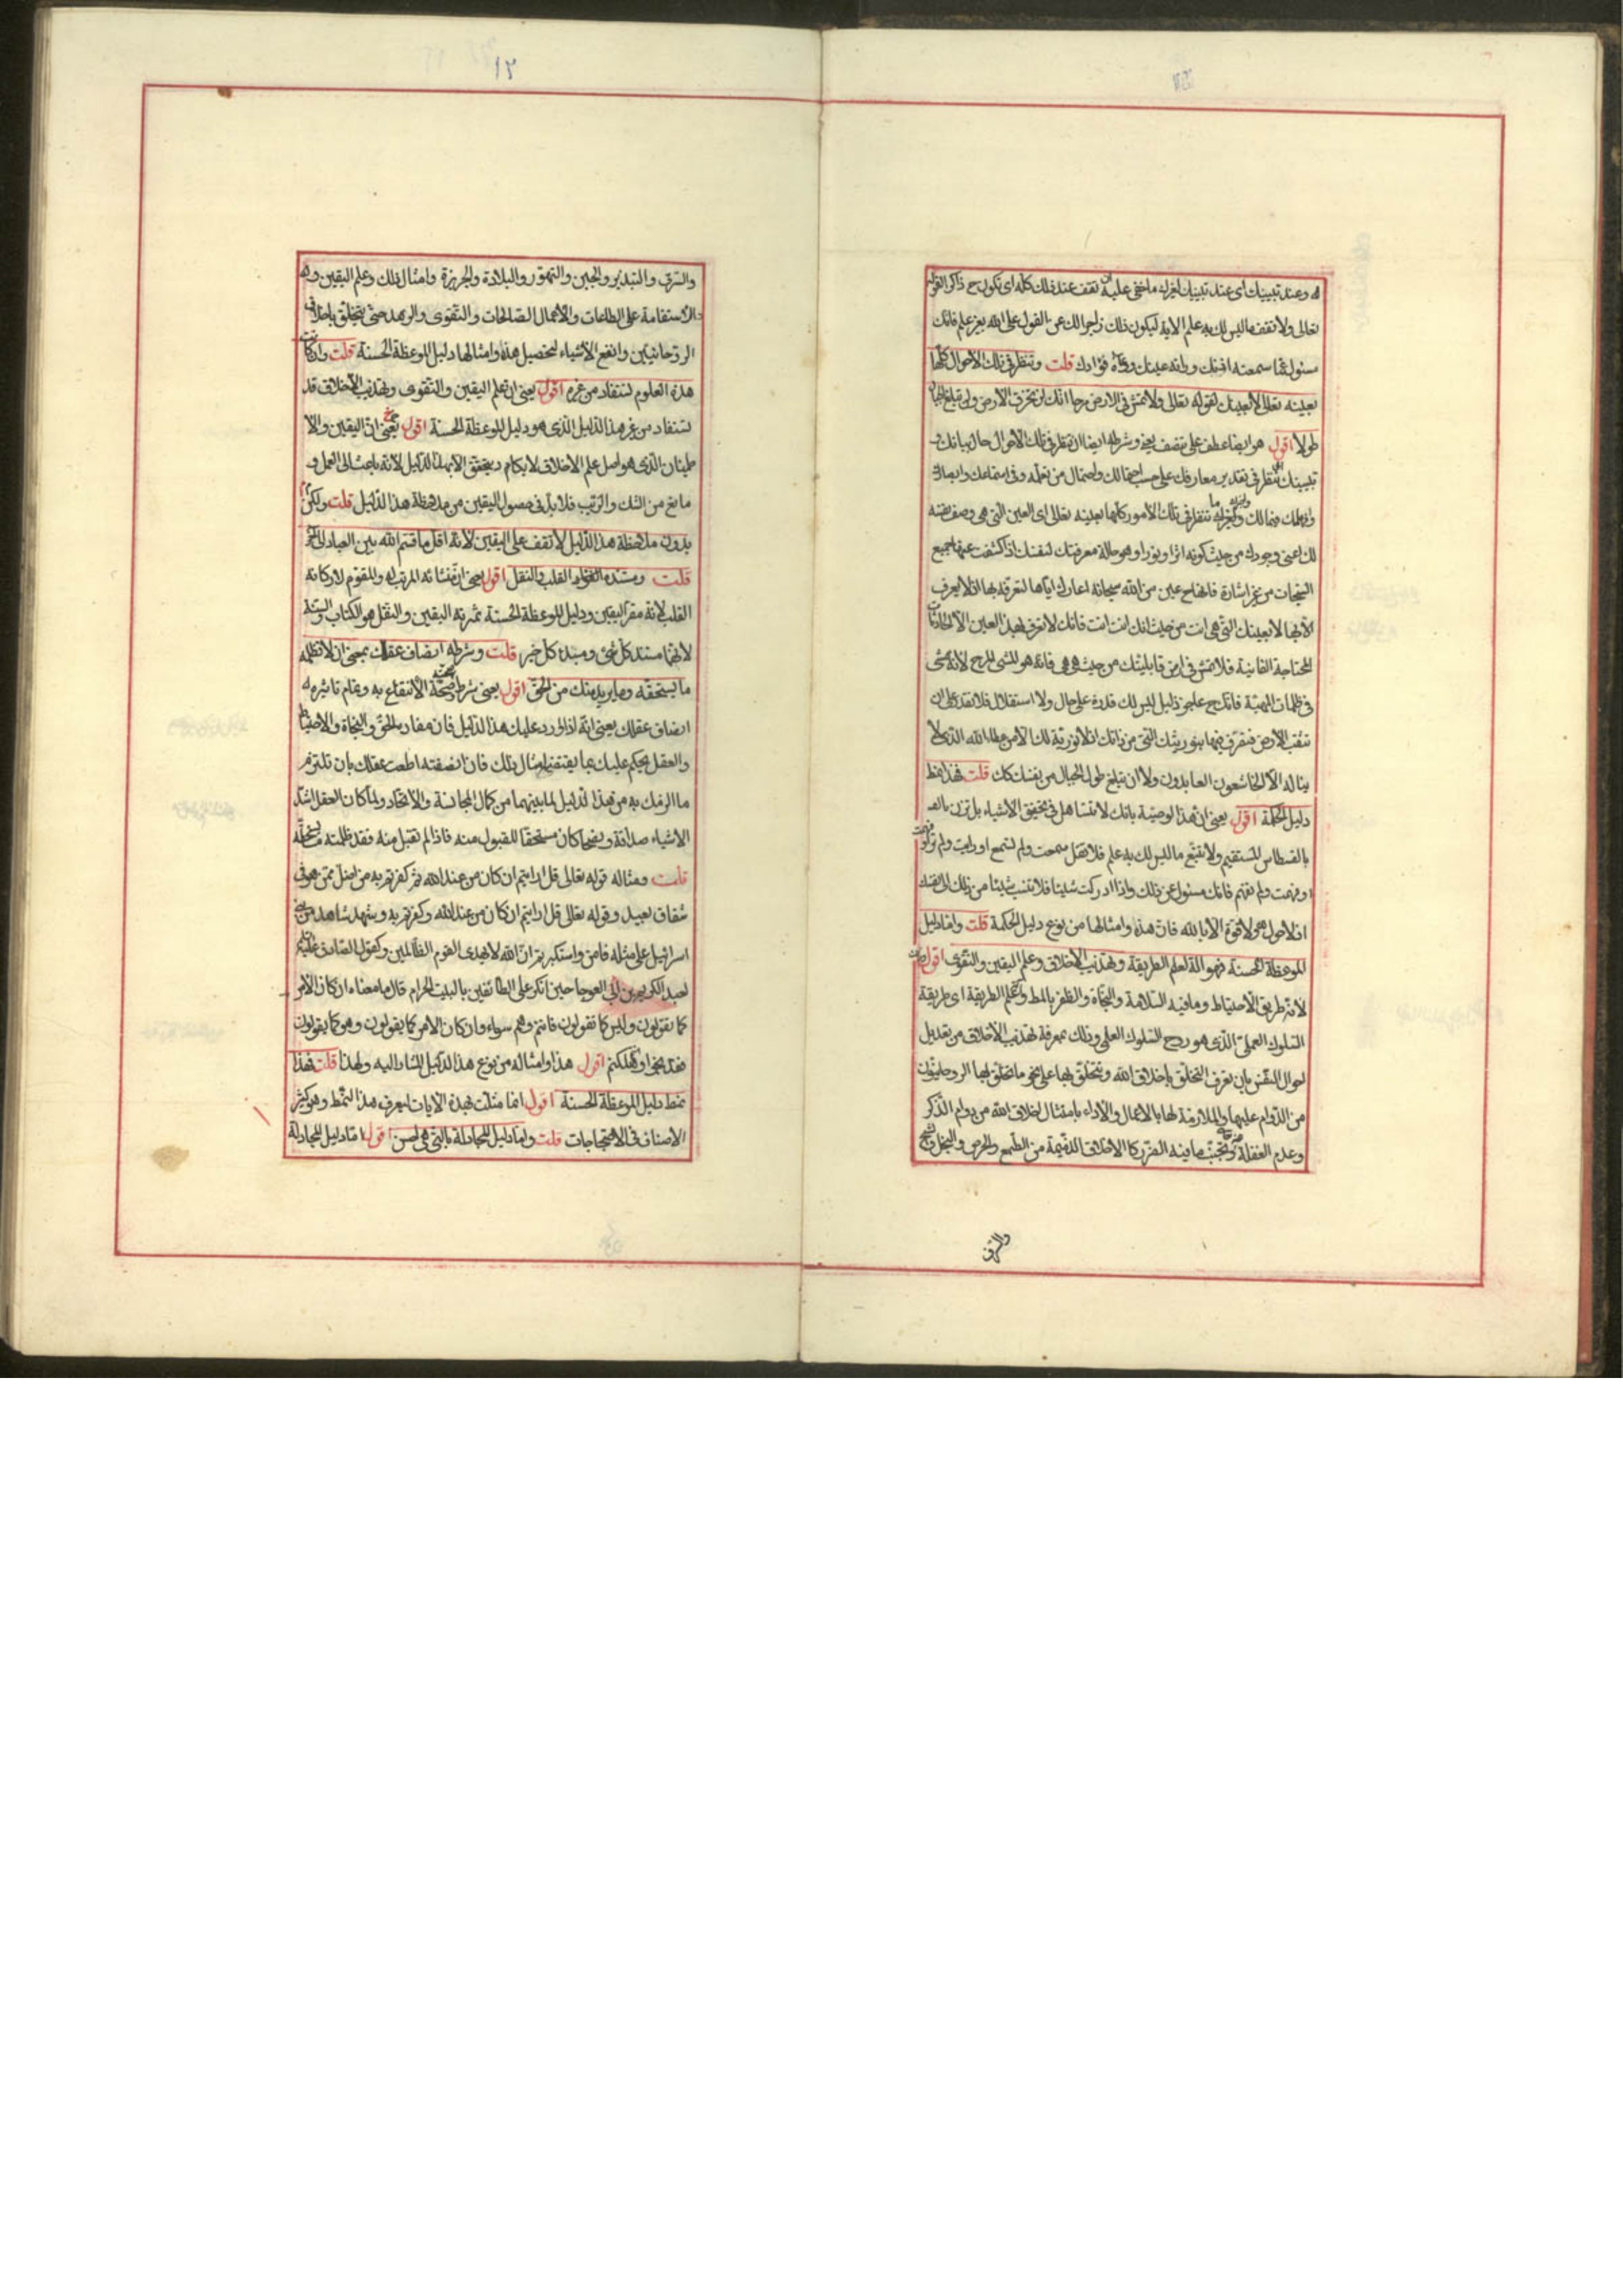 له وعند تبيينك اى عند تبيينك لغيرك ما خفى عليه تقف عند ذلك كله اى تكون ح ذاكر القوله
تعالى ولا تقف ما ليس لك به علم الاية ليكون ذلك زاجرا لك عن القول على الله بغير علم فانك
مسئول عما سمعته اذنك وراته عينك ووعاه فؤادك قلت وتنظر فى تلك الاحوال كلها
بعينه تعالى لا بعينك لقوله تعالى ولا تمش فى الارض مرحا انك لن تخرق الارض ولن تبلغ الجبال
طولا اقول هو ايضا عطف على تقف يعنى وشرطه ايضا ان تنظر فى تلك الاحوال حال بيانك و
تبيينك تنظر فى تقدير معارفك على حسب احتمالك واحتمال من تعلمه وفى استماعك وابصارك
وافهامك فيما لك ولغيرك تنظر فى تلك الامور كلها بعينه تعالى اى العين التى هى وصف نفسه
لك اعنى وجودك من حيث كونه اثرا ونورا وهو حالة معرفتك لنفسك اذا كشفت عنها جميع
السبحات من غير اشارة فانها ح عين من الله سبحانه اعارك اياها لتعرفه بها اذ لا يعرف
الا بها لا بعينك التى هى انت من حيث انك انت انت فانك لا تعرف بهذه العين الا الحادثات
المحتاجة الفانية فلا تمش فى ارض قابليتك من حيث هى هى فانه هو المشى المرح لانه مشى
فى ظلمات المهية فانك ح عاجز ذليل ليس لك قدرة على حال ولا استقلال فلا تقدر على ان
تنقب الارض فتقرف منها بنوريتك التى من ذاتك اذ لا نورية لك الا من عطاء الله الذى لا
يناله الا الخاشعون العابدون ولا ان تبلغ طول الجبال من نفسك كك قلت فهذا نمط
دليل الحكمة اقول يعنى ان هذا الوصية بانك لا تتساهل فى تحقيق الاشياء بل تزن بالـ
بالقسطاس المستقيم ولا تتبع ما ليس لك به علم فلا تقل سمعت ولم تسمع او رايت ولم تر
او فهمت ولم تفهم فانك مسئول عن ذلك واذا ادركت شيئا فلا تنسب شيئا من ذلك الى نفسك
اذ لا حول ولا قوة الا بالله فان هذه وامثالها من نوع دليل الحكمة قلت واما دليل
الموعظة الحسنة فهو الة لعلم الطريقة وتهذيب الاخلاق وعلم اليقين والتقوى اقول
لانه طريق الاحتياط وما فيه السلامة والنجاة والظفر بالمط وعلم الطريقة اى طريقة
السلوك العملى الذى هو روح السلوك العلمى وذلك بمعرفة تهذيب الاخلاق من تعديل
احوال النفس بان تعرف التخلق باخلاق الله وتتخلق بها على نحو ما تخلق بها الروحانيون
من الدوام عليها والملازمة لها بالاعمال والاداء بامتثال اخلاق الله من دوام الذكر
وعدم الغفلة وتجنب ما فيه الضرر كالاخلاق الذميمة من الطمع والحرص والبخل والشح
والسرف
١٢
والسرف والتبذير والجبن والتهور والبلادة والجربزة وامثال ذلك وعلم اليقين وهو
الاستقامة على الطاعات والاعمال الصالحات والتقوى والزهد حتى يتخلق باخلاق
الروحانيين وانفع الاشياء لتحصيل هذه وامثالها دليل الموعظة الحسنة قلت وان كانت
هذه العلوم تستفاد من غيره اقول يعنى ان علم اليقين والتقوى وتهذيب الاخلاق قد
تستفاد من غير هذا الدليل الذى هو دليل الموعظة الحسنة اقول يعنى ان اليقين والا
طمينان الذى هو اصل علم الاخلاق لا يكاد يتحقق الا بهذا الدليل لانه باعث الى العمل و
مانع من الشك والريب فلا بد فى حصول اليقين من ملاحظة هذا الدليل قلت ولكن
بدون ملاحظة هذا الدليل لا تقف على اليقين لانه اقل ما قسم الله بين العباد
قلت ومستنده القلب والنقل اقول يعنى ان منشائه المرتب له والمقوم لاركانه
القلب لانه مقر اليقين ودليل الموعظة الحسنة ثمرته اليقين والنقل هو الكتاب والسنة
لانهما مستند كل شئ ومبدء كل خير قلت وشرطه انصاف عقلك بمعنى ان لا تظلمه
ما يستحقه وما يريد منك من الحق اقول يعنى شرط صحة الانتفاع به وتمام تاثيره
انصاف عقلك يعنى انه اذا ورد عليك هذا الدليل فان مفاده الحق والنجاة والاحتياط
والعقل يحكم عليك بما يقتضيه امثال ذلك فان انصفته اطعت عقلك بان تلتزم
ما الزمك به من هذا الدليل لما بينهما من كمال المجانسة والاتحاد ولما كان العقل اشد
الاشياء صداقة ونصحا كان مستحقا للقبول منه فاذا لم تقبل منه فقد ظلمته ما يستحقه
قلت ومثاله قوله تعالى قل ارايتم ان كان من عند الله ثم كفرتم به من اضل ممن هو فى
شقاق بعيد وقوله تعالى قل ارايتم ان كان من عند الله وكفرتم به وشهد شاهد من بنى
اسرائيل على مثله فامن واستكبرتم ان الله لا يهدى القوم الظالمين وكقول الصادق عليه السلام
لعبد الكريم بن ابى العوجا حين انكر على الطائفين بالبيت الحرام قال ما معناه ان كان الامر
كما تقولون وليس كما تقولون فانتم وهم سواء وان كان الامر كما يقولون وهو كما يقولون
فقد نجوا وهلكتم اقول هذا وامثاله من نوع هذا الدليل المشار اليه ولهذا قلت فهذا
نمط دليل الموعظة الحسنة اقول انما مثلت بهذه الايات ليعرف هذا النمط وهو كثير
الاصناف فى الاحتجاجات قلت واما دليل المجادلة بالتى هى احسن اقول اما دليل المجادلة